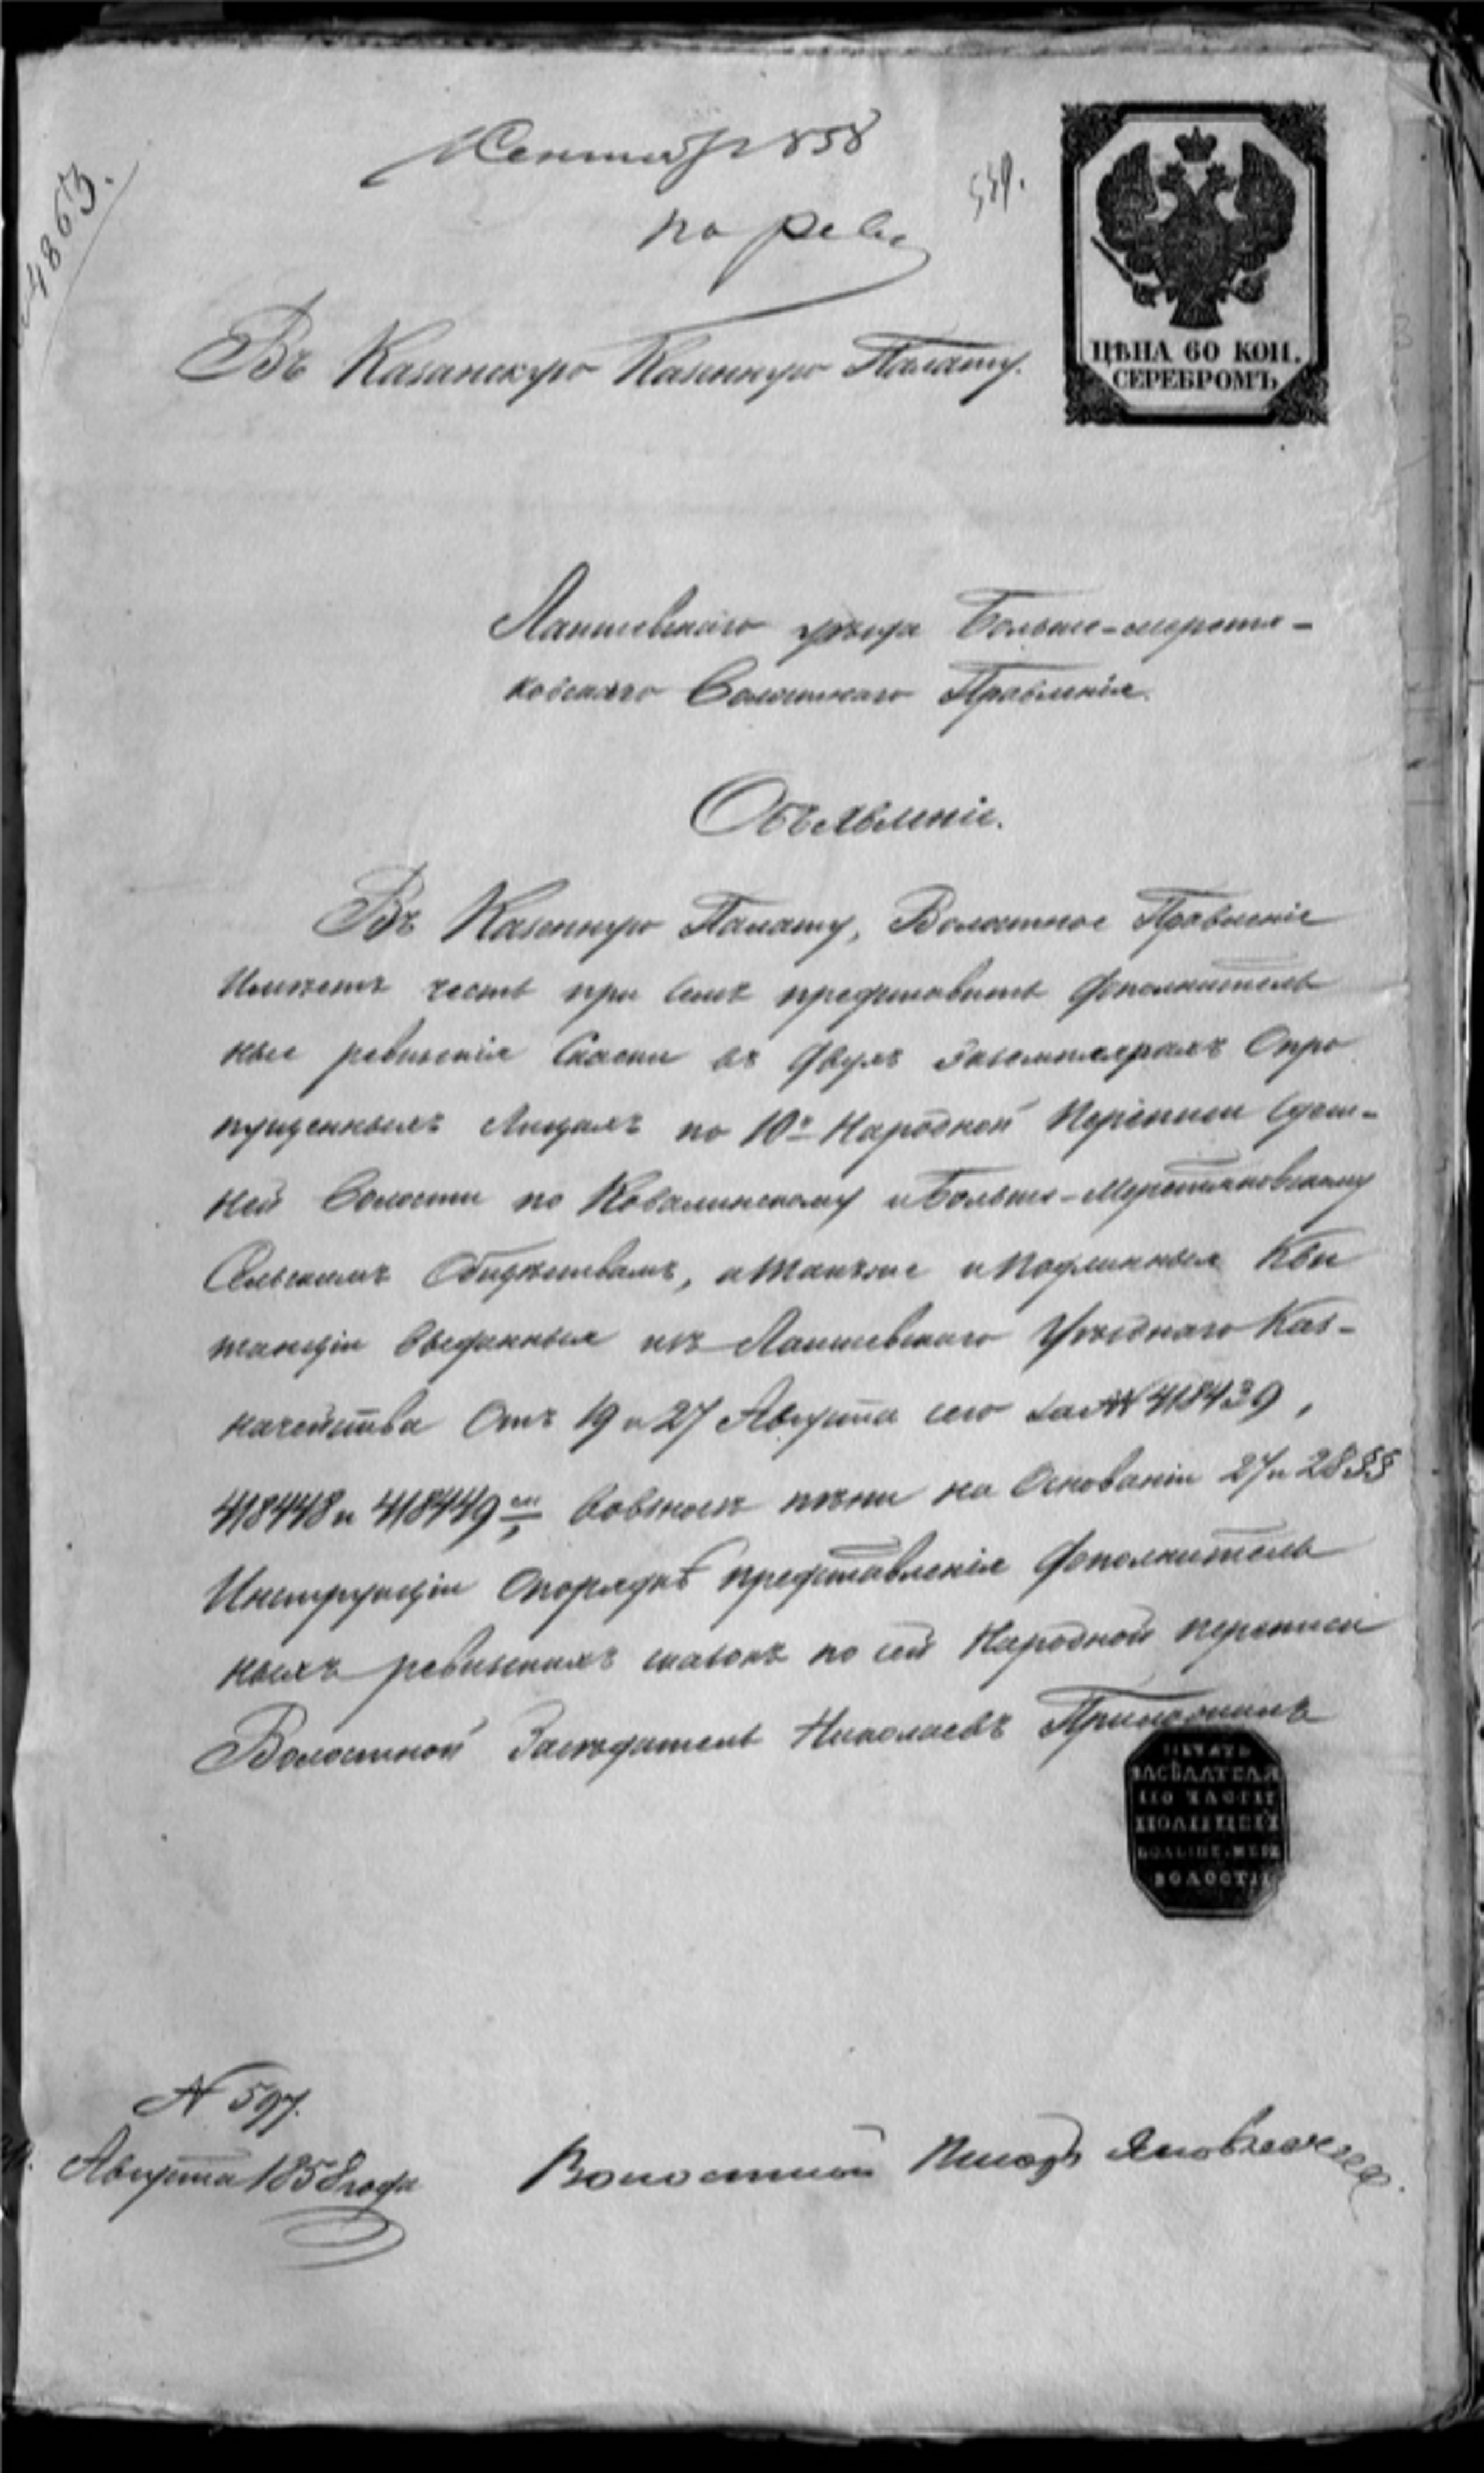 4863.
1 Сентябр 1858
по реви
539.
ЦѢНА 60 КОП.
СЕРЕБРОМЪ
Въ Казанскую Казенную Палату.
Лаишевскаго уѣзда Больше-меретя-
ковскаго Волостнаго Правленія.
Объявленіе.
Въ Казенную Палату, Волостное Правленіе
имѣетъ честь при семъ представить дополнитель
ные ревизскія Сказки въ двухъ экземплярахъ Опро
пущенныхъ Лицахъ по 10й Народной Переписи Сдеш-
ней Волости по Ковалинскому и Больше-Меретяковскому
Сельскимъ Обществамъ, а также и подлинныя Кви
танціи выданныя изъ Лаишевскаго Уѣзднаго Каз-
начейства Отъ 19 и 27 Августа сего за № 418439,
418448 и 418449м взносѣ пѣни на Основаніи 27 и 28 §§
Инструкціи Опорядкѣ представленія дополнитель
ныхъ ревизскихъ сказокъ по сей Народной переписи
Волостной Засѣдатель Николаевъ
ПЕЧАТЬ
ЗАСѢДАТЕЛЯ
ПО ЧАСТИ
ПОЛИЦЕЙ
БОЛЬШЕ-МЕРЕ
ВОЛОСТИ
№ 597.
Августа 1858 года
Волостной Писарь